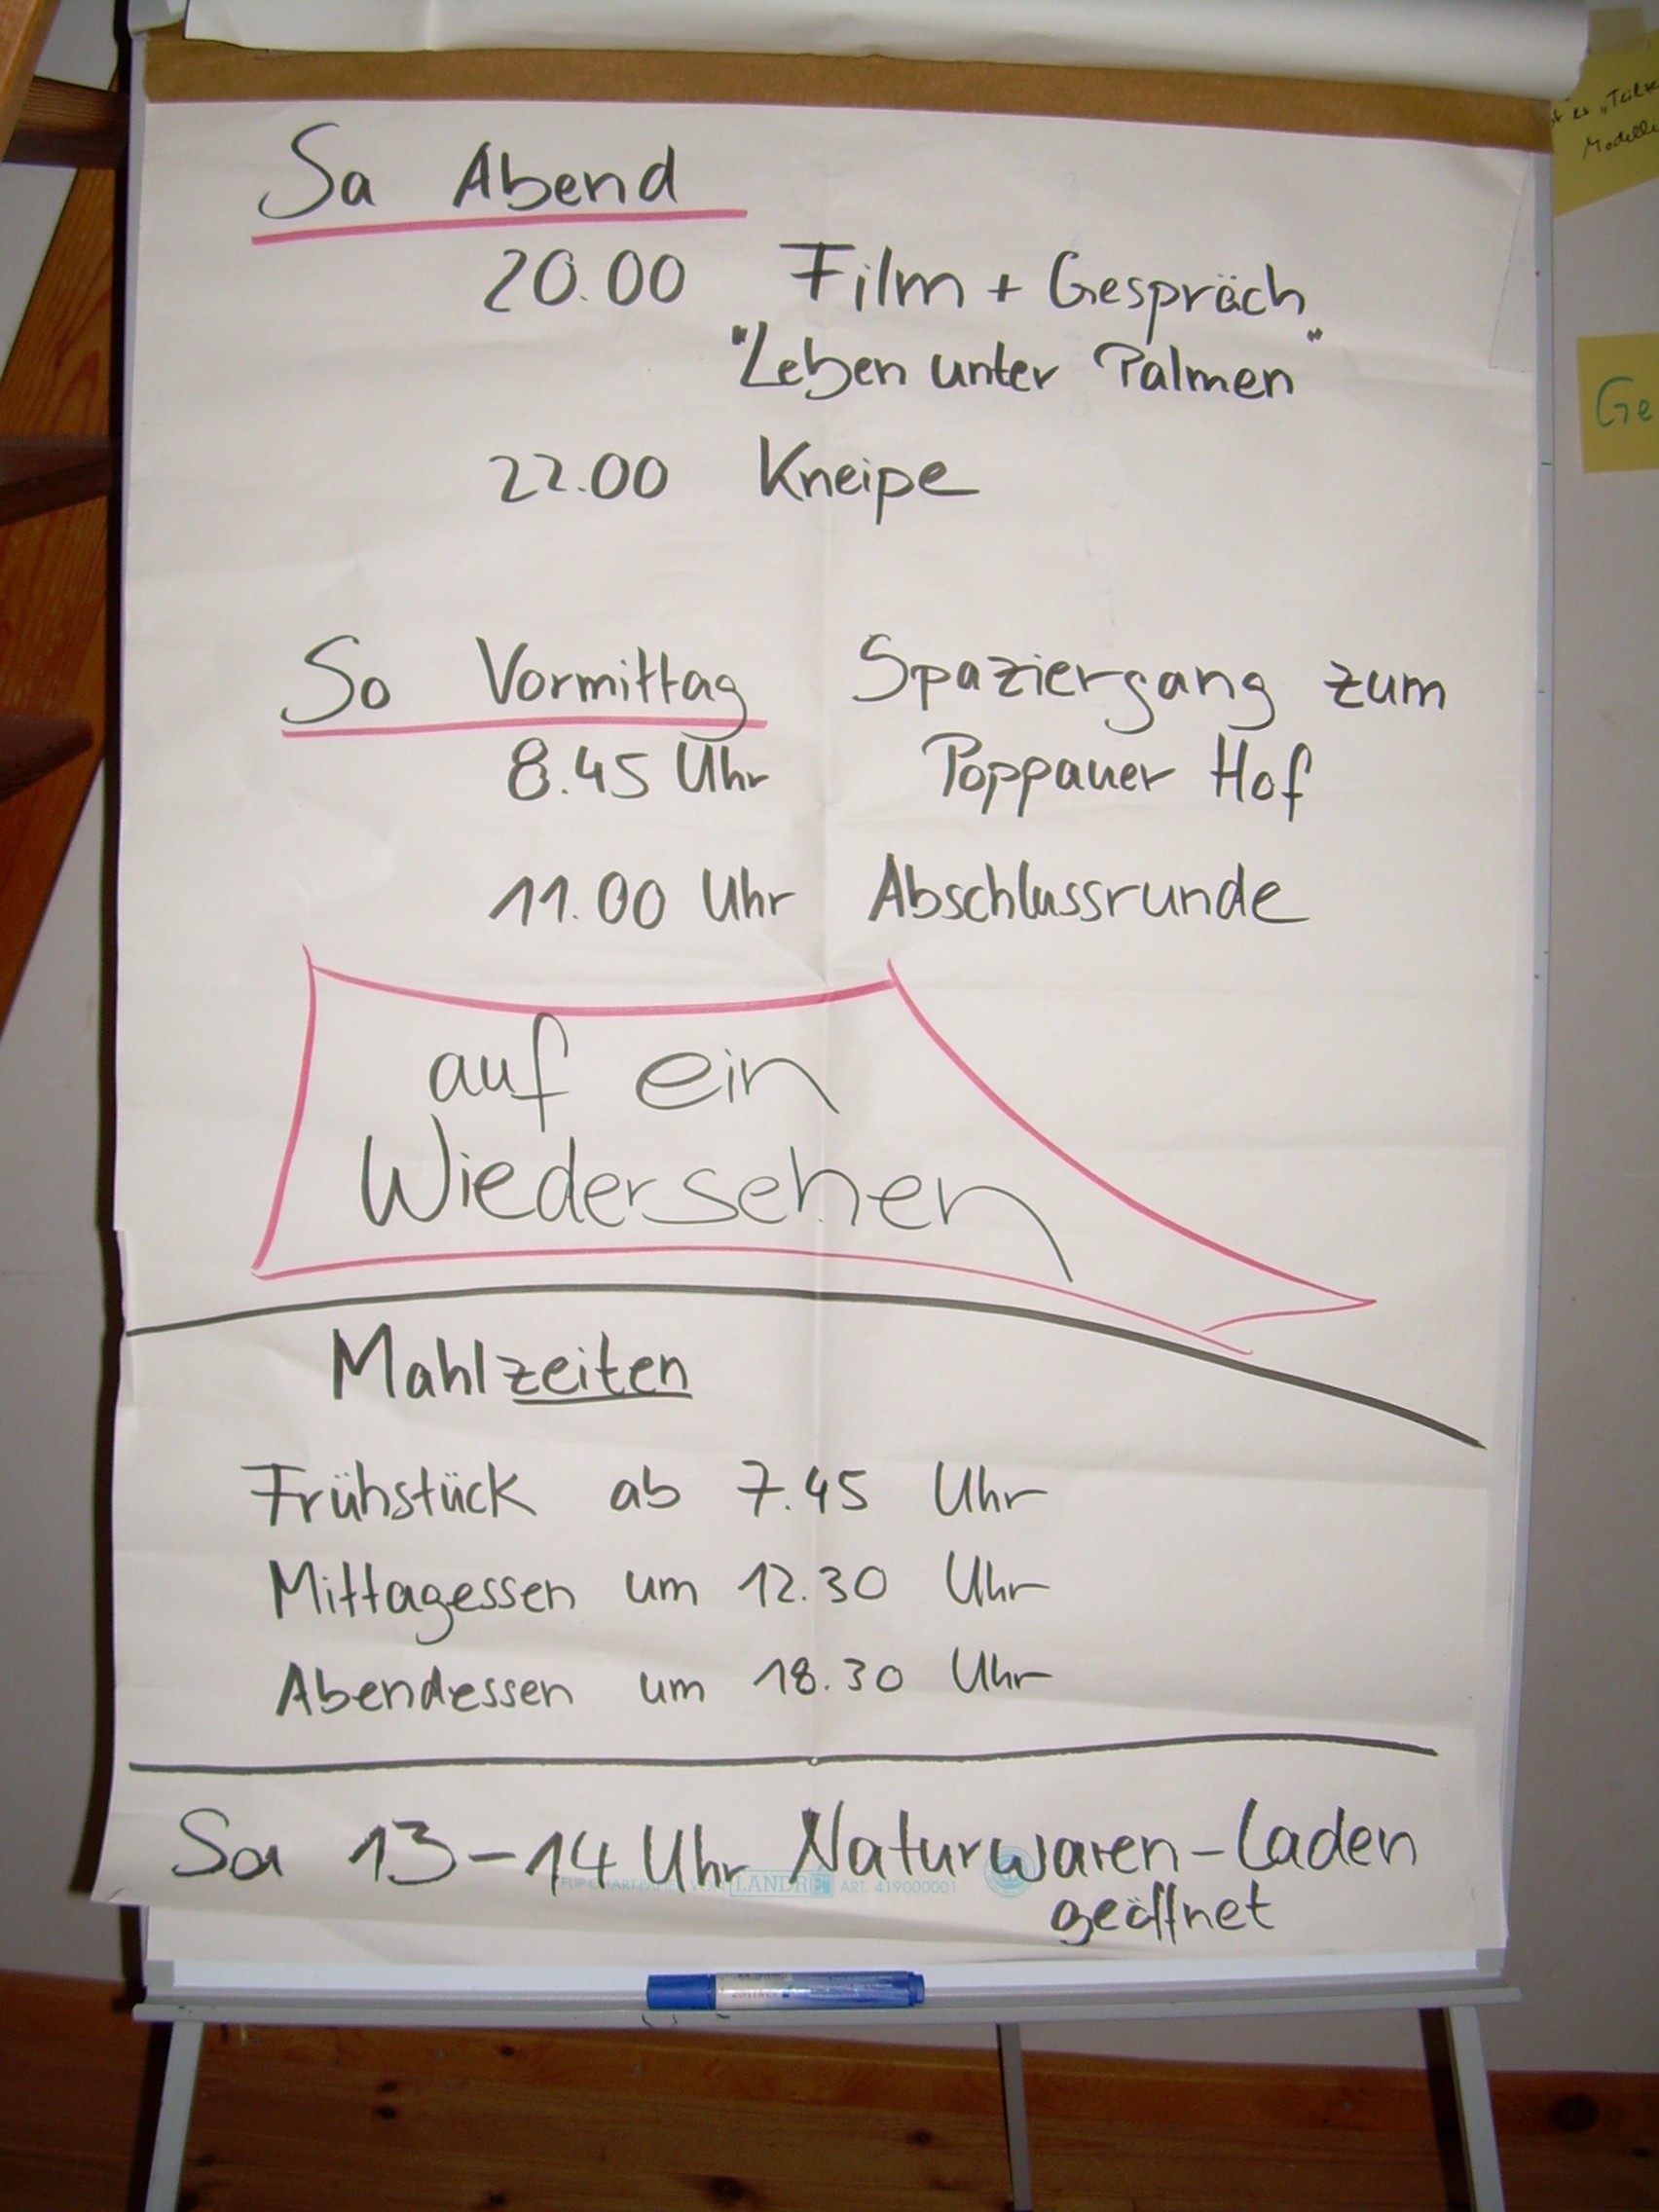 Sa Abend
20.00 Film + Gespräch
"Leben unter Palmen"
22.00 Kneipe
So Vormittag Spaziergang zum
8.45 Uhr Poppauer Hof
11.00 Uhr Abschlussrunde
auf ein
Wiedersehen
Mahlzeiten
Frühstück ab 7.45 Uhr
Mittagessen um 12.30 Uhr
Abendessen um 18.30 Uhr
Sa 13-14 Uhr Naturwaren-Laden
geöffnet
FLIP-CHART-PAPIER VON LANDRÉ ART. 419000001
Ge